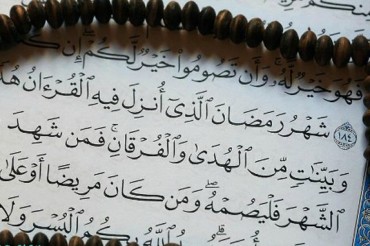 فَهُوَ خَيْرٌ لَّهُۥ وَأَن تَصُومُوا۟ خَيْرٌ لَّكُمْ إِن
١٨٤ شَهْرُ رَمَضَانَ ٱلَّذِىٓ أُنزِلَ فِيهِ ٱلْقُرْءَانُ
وَبَيِّنَٰتٍ مِّنَ ٱلْهُدَىٰ وَٱلْفُرْقَانِ ۚ فَمَن شَهِدَ
ٱلشَّهْرَ فَلْيَصُمْهُ ۖ وَمَن كَانَ مَرِيضًا أَوْ عَلَىٰ
ٱللَّهُ بِكُمُ ٱلْيُسْرَ وَلَا